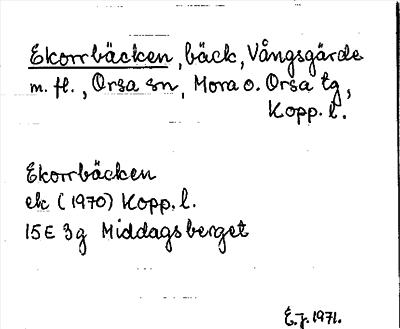 Ekorrbäcken, bäck, Vångsgärde
m. fl., Orsa sn, Mora o. Orsa tg,
Kopp. l.
Ekorrbäcken
ek (1970) Kopp. l.
15E 3g Middagsberget
E.J. 1971.